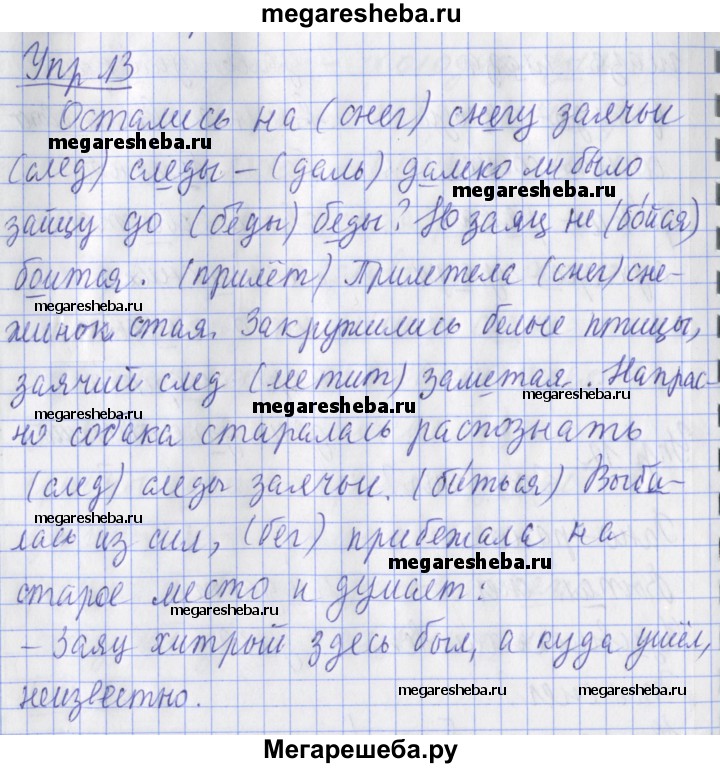 megaresheba.ru
Упр 13
Остались на (снег) снегу заячьи
megaresheba.ru
(след) следы – (даль) далеко ли было
megaresheba.ru
зайцу до (беды) беды? Но заяц не (бойся)
боится. (прилёт) Прилетела (снег) сне-
megaresheba.ru
жинок стая. Закружились белые птицы,
заячий след (метит) заметая. Напрас-
megaresheba.ru
megaresheba.ru
но собака старалась распознать
(след) следы заячьи. (биться) Выби-
megaresheba.ru
лась из сил, (бег) прибежала на
megaresheba.ru
старое место и думает:
megaresheba.ru
– Заяц хитрый здесь был, а куда ушёл,
неизвестно.
megaresheba.ru
Мегарешеба.ру